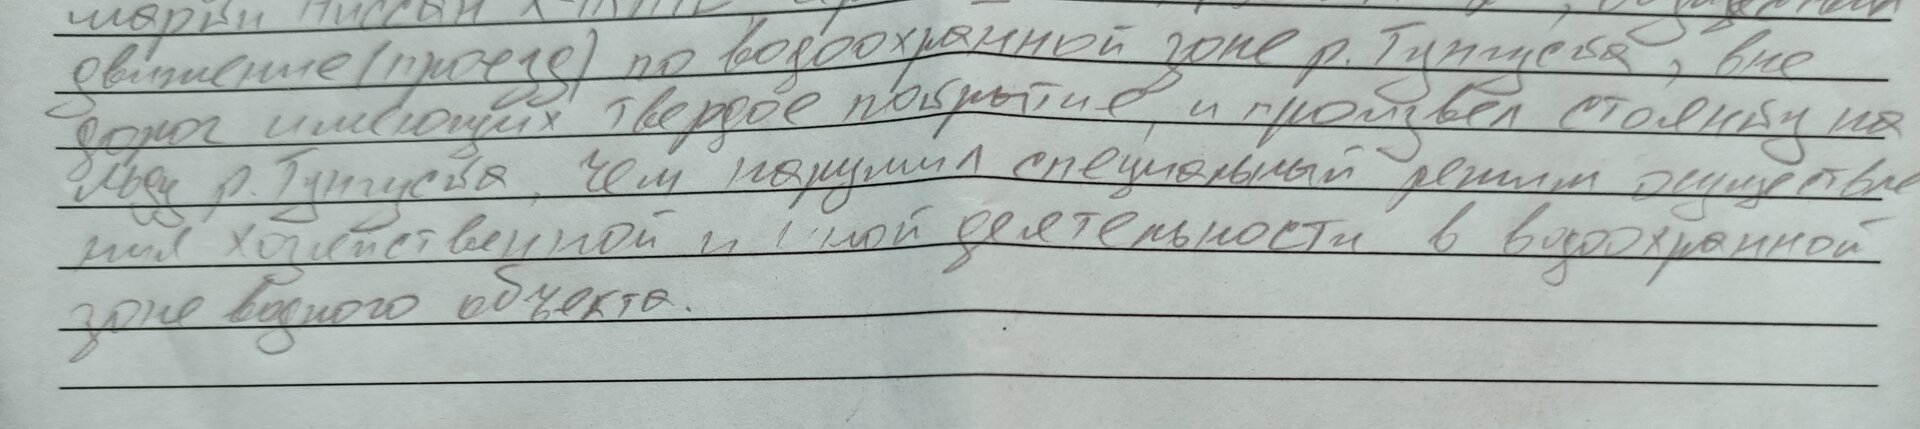 марки Ниссан X-TRAIL
движение (проезд) по водоохранной зоне р. Тунгуска, вне
дорог имеющих твердое покрытие, и произвел стоянку на
льду р. Тунгуска, чем нарушил специальный режим осуществле
ния хозяйственной и иной деятельности в водоохранной
зоне водного объекта.